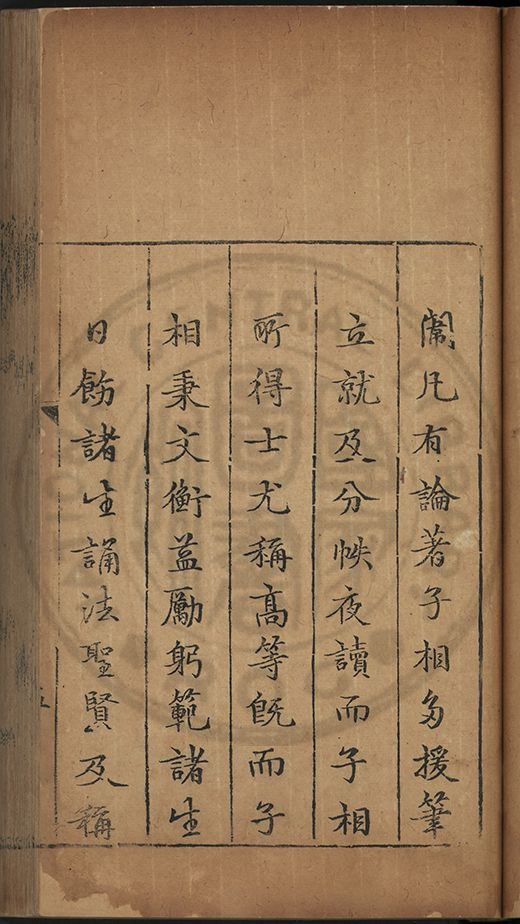 闈凡有論著子相多援筆
立就及分帙夜讀而子相
所得士尤稱高等既而子
相秉文衡益勵躬範諸生
日飭諸生誦法聖賢及稱